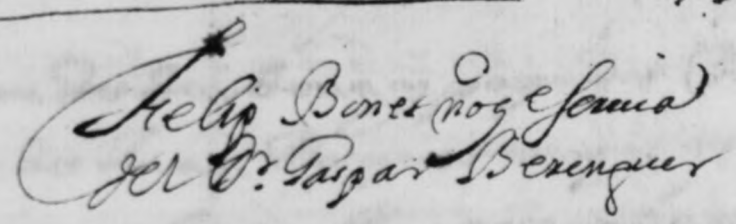 Felip Bonet noy e
del Dr. Gaspar Berenguer